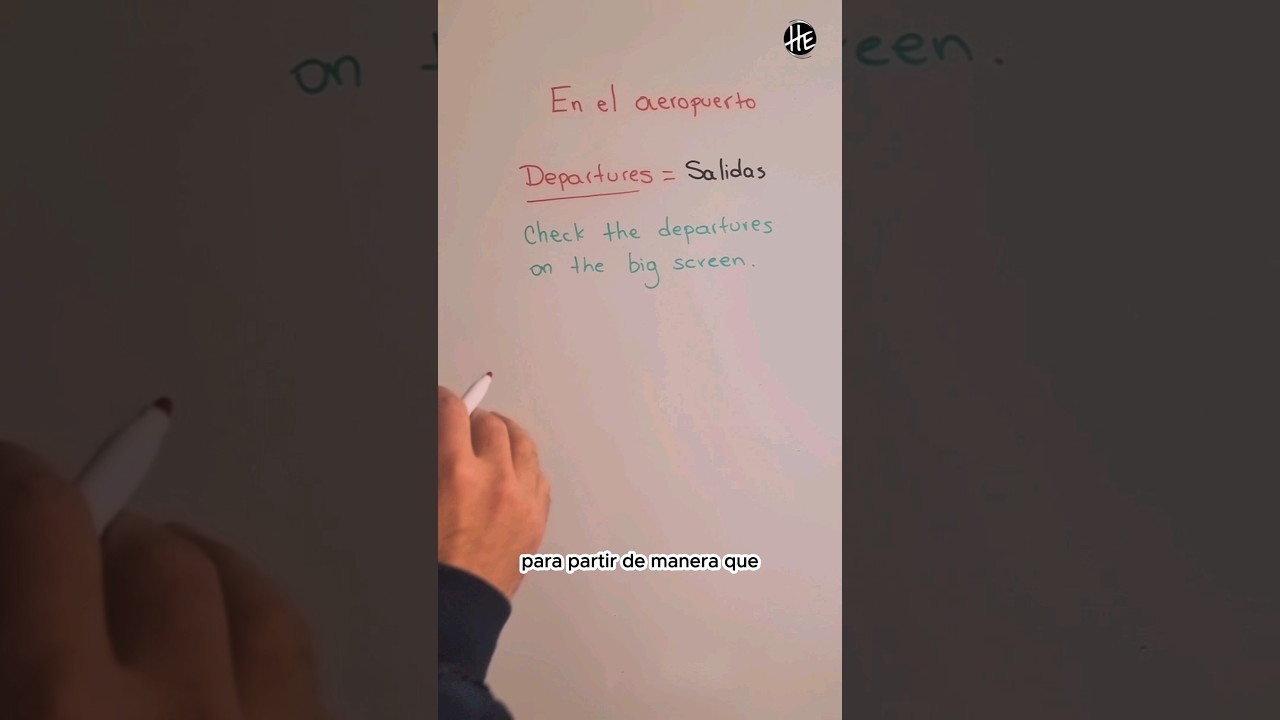 HE
En el aeropuerto
Departures = Salidas
Check the departures
on the big screen.
para partir de manera que
on
een.